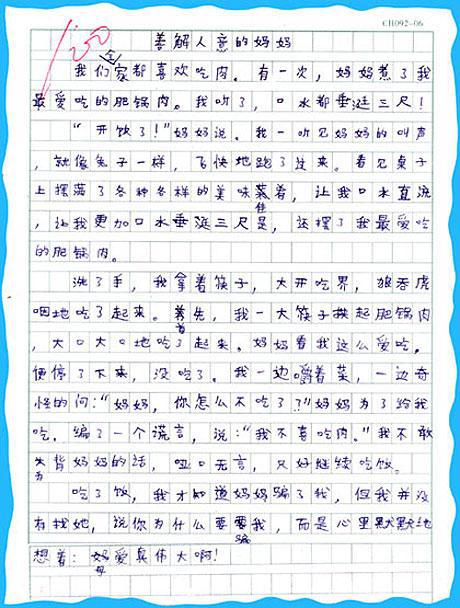 CH092-06
100
善解人意的妈妈
我们全家都喜欢吃肉。有一次,妈妈煮了我
最爱吃的肥锅肉。我听了,口水都垂涎三尺!
“开饭了!”妈妈说。我一听见妈妈的叫声
,就像兔子一样,飞快地跑了过来。看见桌子
上摆满了各种各样的美味菜肴,让我口水直流
佳
,让我更加口水垂涎三尺是,还摆了我最爱吃
的肥锅肉。
洗了手,我拿着筷子,大开吃界,狼吞虎
咽地吃了起来。首先,我一大筷子拱起肥锅肉
首
,大口大口地吃了起来。妈妈看我这么爱吃,
便停了下来,没吃了。我一边嚼着菜,一边奇
怪的问:“妈妈,你怎么不吃了?”妈妈为了给我
吃,编了一个谎言,说:“我不喜吃肉。”我不敢
失背妈妈的话,哑口无言,只好继续吃饭。
为
吃了饭,我才知道妈妈骗了我,但我并没
有找她,说你为什么要骗我,而是心里默默地
骗
想着:母爱真伟大啊!
母